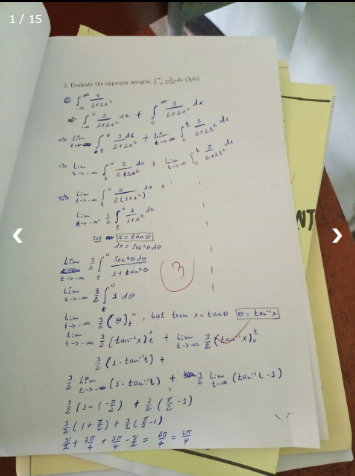 1 / 15
5. Evaluate the improper integral, ∫_{-∞}^{∞} 3/(2+2x²) dx (3pts)
∫_{-∞}^{∞} 3/(2+2x²)
⇒ ∫_{-∞}^{0} 3/(2+2x²) dx + ∫_{0}^{∞} 3/(2+2x²) dx
⇒ Lim t→-∞ ∫_{t}^{0} 3 dx/(2+2x²) + Lim t→∞ ∫_{0}^{t} 3/(2+2x²) dx
⇒ Lim t→-∞ ∫_{t}^{0} 3/(2+2x²) dx + Lim t→∞ ∫_{0}^{t} 3/(2+2x²) dx
Lim t→-∞ ∫_{t}^{0} 3/(2(1+x²)) dx +
Lim t→-∞ 3/2 ∫_{t}^{0} 1/(1+x²) dx
let x = tanθ
dx = sec²θ dθ
Lim t→-∞ 3/2 ∫_{t}^{0} sec²θ dθ/(1+tan²θ)
3
Lim t→-∞ 3/2 ∫_{t}^{0} 1 dθ
Lim t→-∞ 3/2 (θ)_{t}^{0}, but from x = tanθ θ = tan⁻¹x
Lim t→-∞ 3/2 (tan⁻¹x) + Lim t→∞ 3/2 (tan⁻¹x)_{0}^{t}
3/2 (1 - tan⁻¹t) +
3/2 Lim t→-∞ (1 - tan⁻¹t) + 3/2 Lim t→∞ (tan⁻¹t - 1)
3/2 (1 - (-π/2)) + 3/2 (π/2 - 1)
3/2 (1 + π/2) + 3/2 (π/2 - 1)
NT